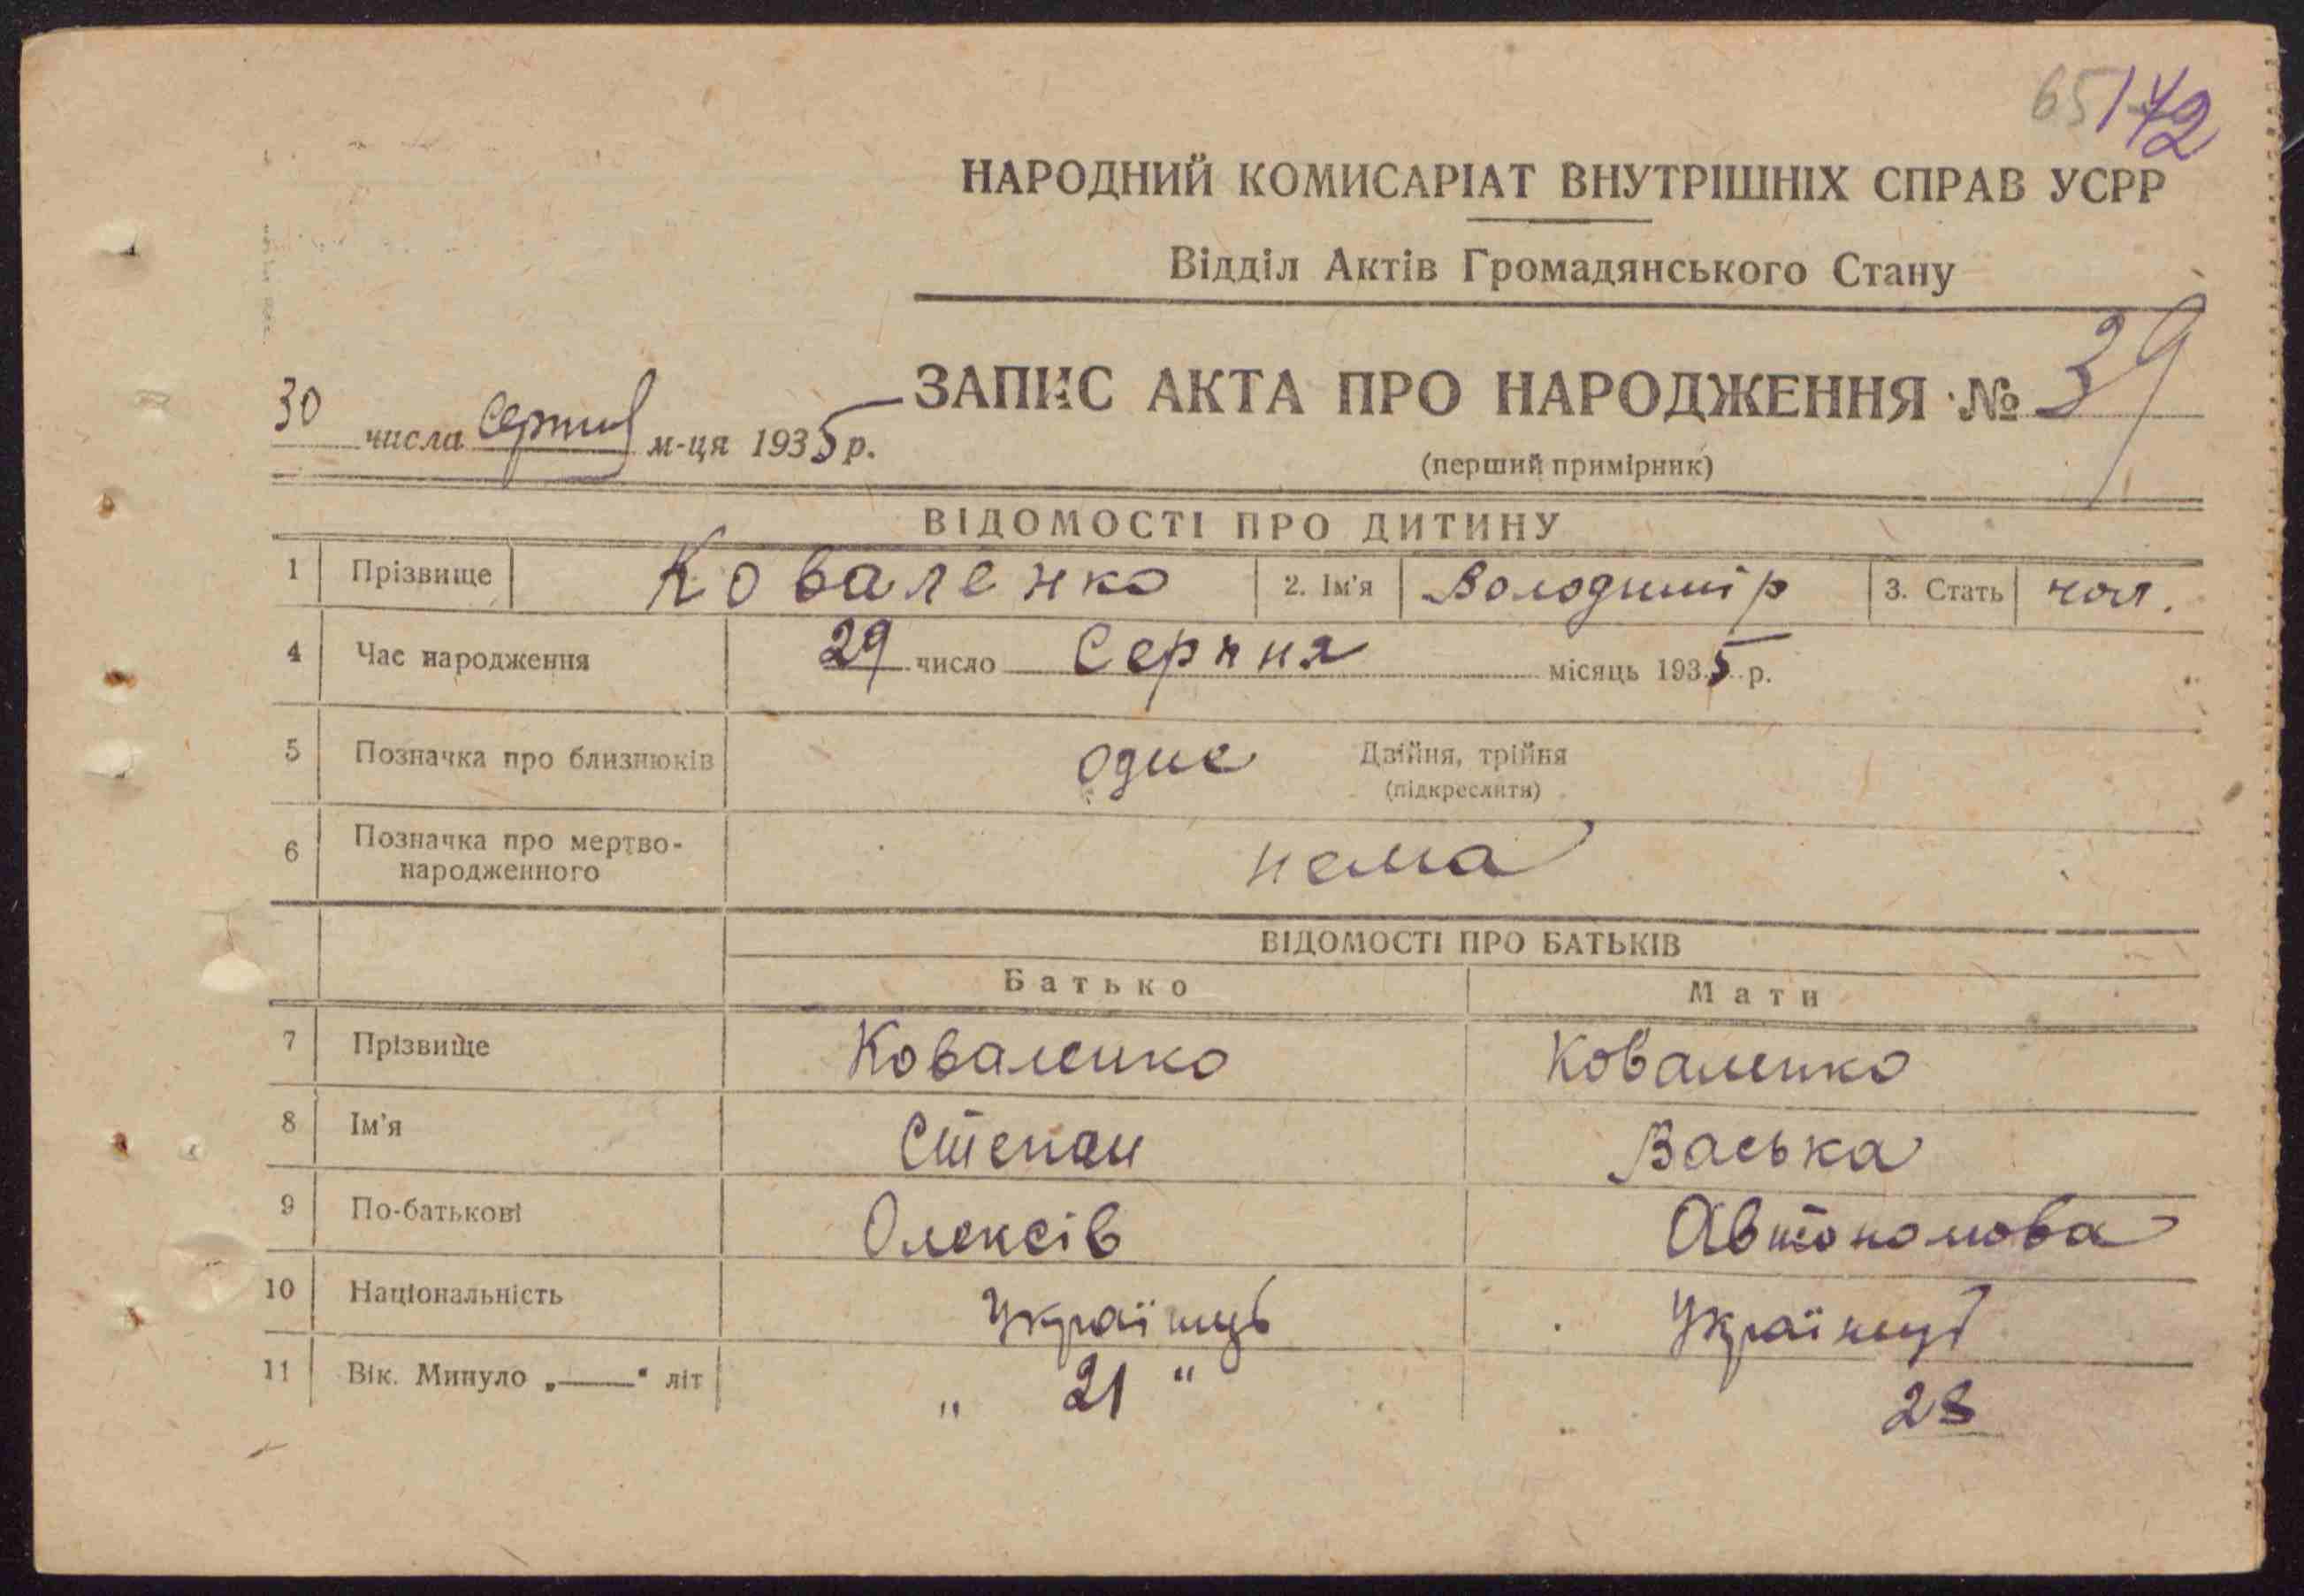 65 142
НАРОДНИЙ КОМИСАРІАТ ВНУТРІШНІХ СПРАВ УСРР
Відділ Актів Громадянського Стану
ЗАПИС АКТА ПРО НАРОДЖЕННЯ № 39
30 числа серпня м-ця 1935 р.
(перший примірник)
ВІДОМОСТІ ПРО ДИТИНУ
1 Прізвище Коваленко 2. Ім'я Володимір 3. Стать чол.
4 Час народження 29 число Серпня місяць 1935 р.
5 Позначка про близнюків одне Двійня, трійня
(підкреслити)
6 Позначка про мертво-
народженного нема
ВІДОМОСТІ ПРО БАТЬКІВ
Батько Мати
7 Прізвище Коваленко Коваленко
8 Ім'я Степан Васька
9 По-батькові Олексів Автономова
10 Національність Українць Українць
11 Вік. Минуло „——“ літ „ 21 “ 28